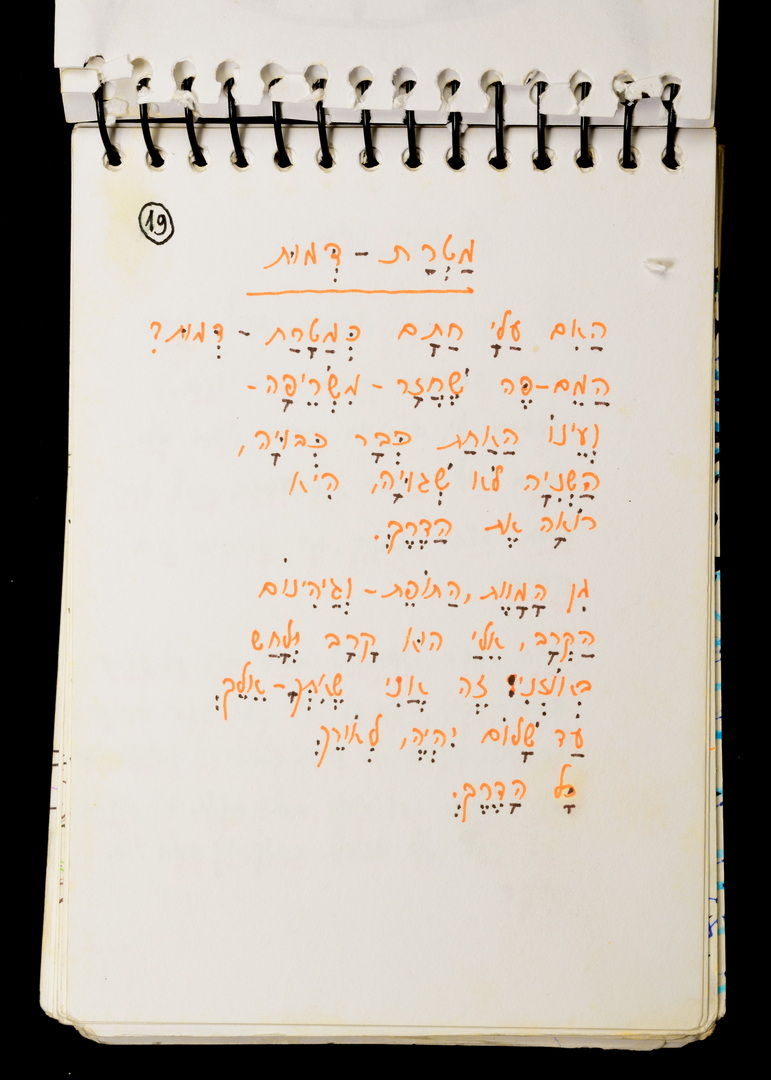 19
מַטְּרַת - דְמוּת
הַאִם עַלַי חֹתָם כְּמַטָרַת - דְמוּת?
הַמֵם-פֶה שֶׁחֲזָר - מִשְׂרֵיפָה -
וְעֵינוֹ הַאַחַת כְּבָר כְּבוּיָה,
הַשְׁנִיָה לֹא שָׁגוּיָה, הִיא
רוֹאָה אֶת הַדֶרֶךְ.
גַן הָמָוֶת, הַתוֹפֶת - וְגֵיהִינוֹם
הַקְרָב, אֵלַי הוּא קָרַב וְלָחַשׁ
בְּאוֹזְנַיי זֶה אֲנִי שֶׁאִיתָךְ - אֵלֵךְ,
עַד שָׁלוֹם יִהְיֶה, לְאוֹרֵךְ
כָּל הַדֶרֶךְ.